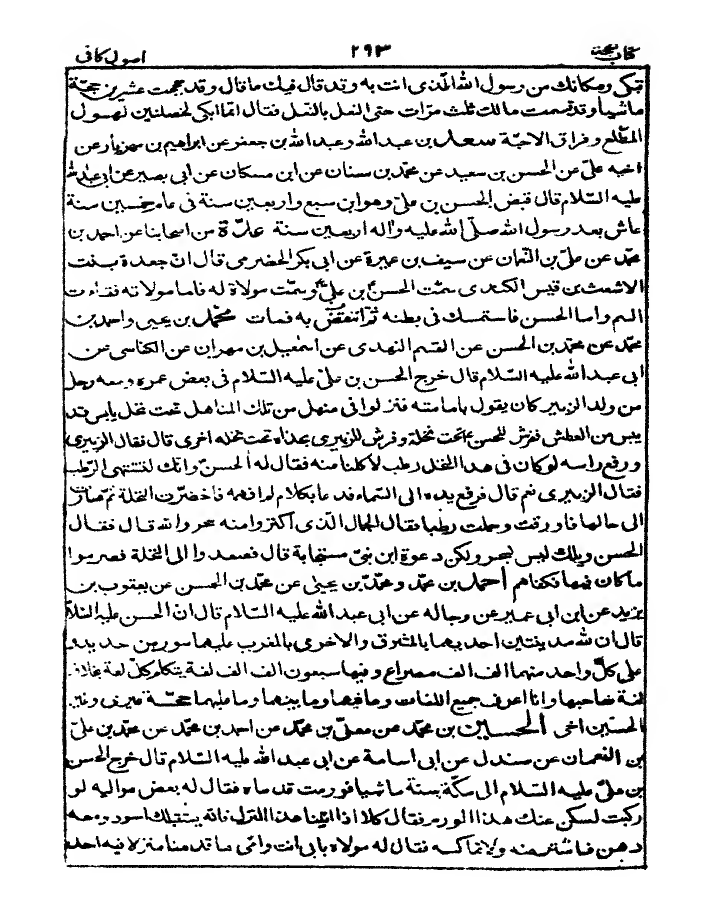 كتاب الحجة ٢٩٣ اصول كافى
تبكى ومكانك من رسول الله الذى انت به وقد قال فيك ما قال وقد حججت عشرين حجة
ماشيا وقد قسمت مالك ثلث مرات حتى النعل بالنعل فقال انما ابكى لخصلتين لهول
المطلع وفراق الاحبة سعد بن عبدالله وعبدالله بن جعفر عن ابراهيم بن مهزيار عن
اخيه على عن الحسن بن سعيد عن محمد بن سنان عن ابن مسكان عن ابى بصير عن ابى عبدالله
عليه السلام قال قبض الحسن بن على وهو ابن سبع واربعين سنة فى عام خمسين سنة
عاش بعد رسول الله صلى الله عليه واله اربعين سنة عدة من اصحابنا عن احمد بن
محمد عن على بن النعمان عن سيف بن عميرة عن ابى بكر الحضرمى قال ان جعدة بنت
الاشعث بن قيس الكندى سمت الحسن بن على وسمت مولاة له فاما مولاته فقاءت
السم واما الحسن فاستمسك فى بطنه ثم انتفض به فمات محمد بن يحيى واحمد بن
محمد عن محمد بن الحسن عن القسم النهدى عن اسمعيل بن مهران عن الكناسى عن
ابى عبدالله عليه السلام قال خرج الحسن بن على عليه السلام فى بعض عمره ومعه رجل
من ولد الزبير كان يقول بامامته فنزلوا فى منهل من تلك المناهل تحت نخل يابس قد
يبس من العطش ففرش للحسن تحت نخلة وفرش للزبيرى بحذاه تحت نخلة اخرى قال فقال الزبيرى
ورفع راسه لو كان فى هذا النخل رطب لاكلنا منه فقال له الحسن وانك لتشتهى الرطب
فقال الزبيرى نعم قال فرفع يده الى السماء فدعا بكلام لم افهمه فاخضرت النخلة ثم صارت
الى حالها فاورقت وحملت رطبا فقال الجمال الذى اكتروا منه سحر والله قال فقال
الحسن ويلك ليس بسحر ولكن دعوة ابن نبى مستجابة قال فصعدوا الى النخلة فصرموا
ما كان فيها فكفاهم احمد بن محمد ومحمد بن يحيى عن محمد بن الحسن عن يعقوب بن
يزيد عن ابن ابى عمير عن رجاله عن ابى عبدالله عليه السلام قال ان الحسن عليه السلام
قال ان لله مدينتين احديهما بالمشرق والاخرى بالمغرب عليهما سور من حديد و
على كل واحد منهما الف الف مصراع وفيها سبعون الف الف لغة يتكلم كل لغة بخلاف
لغة صاحبها وانا اعرف جميع اللغات وما فيهما وما بينهما وما عليهما حجة غيرى وغير
الحسين اخى الحسين بن محمد عن معلى بن محمد عن احمد بن محمد عن محمد بن على
بن النعمان عن صندل عن ابى اسامة عن ابى عبدالله عليه السلام قال خرج الحسن
بن على عليه السلام الى مكة سنة ماشيا فورمت قدماه فقال له بعض مواليه لو
ركبت لسكن عنك هذا الورم فقال كلا اذا اتينا هذا المنزل فانه يستقبلك اسود ومعه
دهن فاشتر منه ولا تماكسه فقال له مولاه بابى انت وامى ما قدمنا منزلا فيه احد